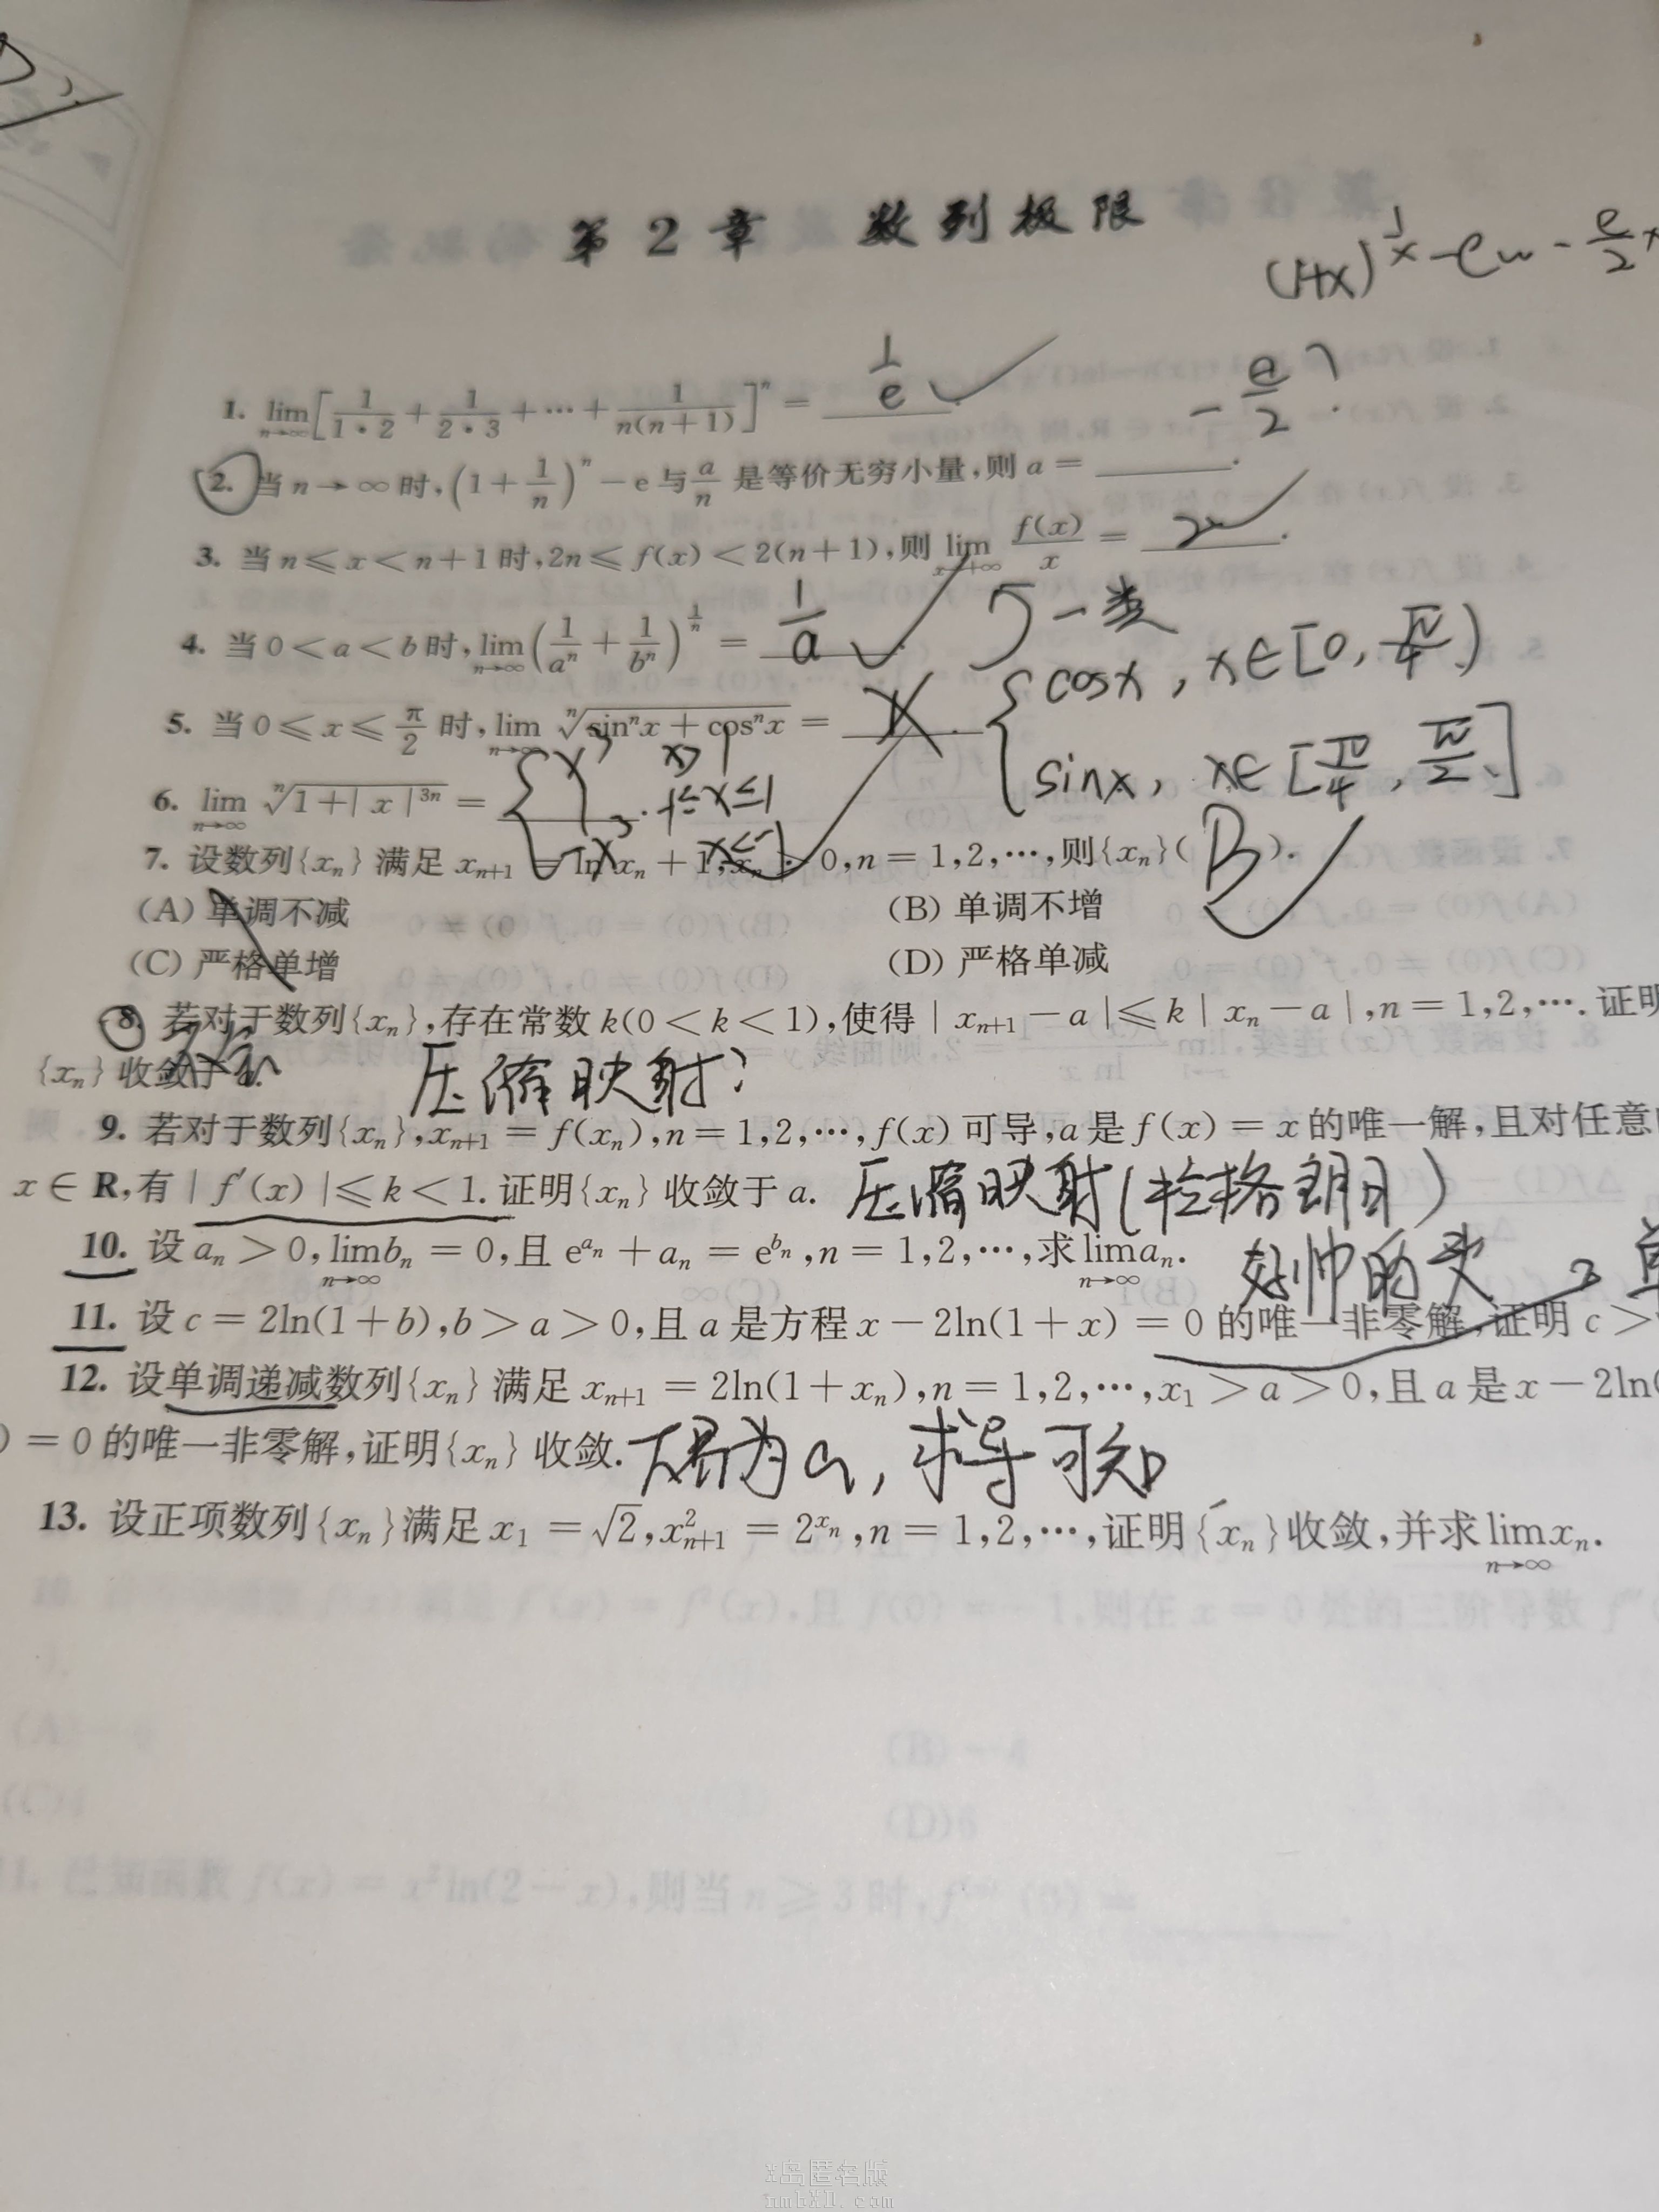 第2章 数列极限
(1+x)^{1/x} - e ~ - e/2 x
- e/2.
1. lim_{n→∞}[1/(1·2) + 1/(2·3) + ··· + 1/(n(n+1))]^n = 1/e.
2. 当 n→∞ 时, (1+1/n)^n - e 与 a/n 是等价无穷小量, 则 a = ______.
3. 当 n≤x<n+1 时, 2n≤f(x)<2(n+1), 则 lim_{x→+∞} f(x)/x = 2.
4. 当 0<a<b 时, lim_{n→∞}(1/a^n + 1/b^n)^{1/n} = 1/a.
一类
5. 当 0≤x≤π/2 时, lim_{n→∞} ⁿ√(sin^n x + cos^n x) = ______.
{ cosx, x∈[0, π/4)
sinx, x∈[π/4, π/2]
6. lim_{n→∞} ⁿ√(1+|x|^{3n}) = { x³, x>1
1, -1≤x≤1
-x³, x<-1
7. 设数列{x_n}满足 x_{n+1} = ln x_n + 1, x_n > 0, n = 1,2,···, 则{x_n}( B ).
(A) 单调不减 (B) 单调不增
(C) 严格单增 (D) 严格单减
8. 若对于数列{x_n}, 存在常数 k(0<k<1), 使得 |x_{n+1}-a|≤k|x_n-a|, n = 1,2,···. 证明
{x_n}收敛于a. 压缩映射?
9. 若对于数列{x_n}, x_{n+1} = f(x_n), n = 1,2,···, f(x)可导, a 是 f(x) = x 的唯一解, 且对任意
x∈R, 有 |f'(x)|≤k<1. 证明{x_n}收敛于 a. 压缩映射(拉格朗日)
10. 设 a_n>0, lim_{n→∞} b_n = 0, 且 e^{a_n} + a_n = e^{b_n}, n = 1,2,···, 求 lim_{n→∞} a_n.
好帅的夹 → 单
11. 设 c = 2ln(1+b), b>a>0, 且 a 是方程 x-2ln(1+x) = 0 的唯一非零解, 证明 c>
12. 设单调递减数列{x_n}满足 x_{n+1} = 2ln(1+x_n), n = 1,2,···, x_1>a>0, 且 a 是 x-2ln(
) = 0 的唯一非零解, 证明{x_n}收敛. 下界为a, 求导可知
13. 设正项数列{x_n}满足 x_1 = √2, x_{n+1}^2 = 2^{x_n}, n = 1,2,···, 证明{x_n}收敛, 并求 lim_{n→∞} x_n.
X岛匿名版
nmbXD.com